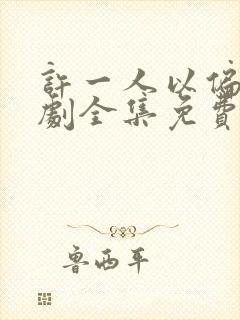 許一人以偏
劇全集免費
魯西平